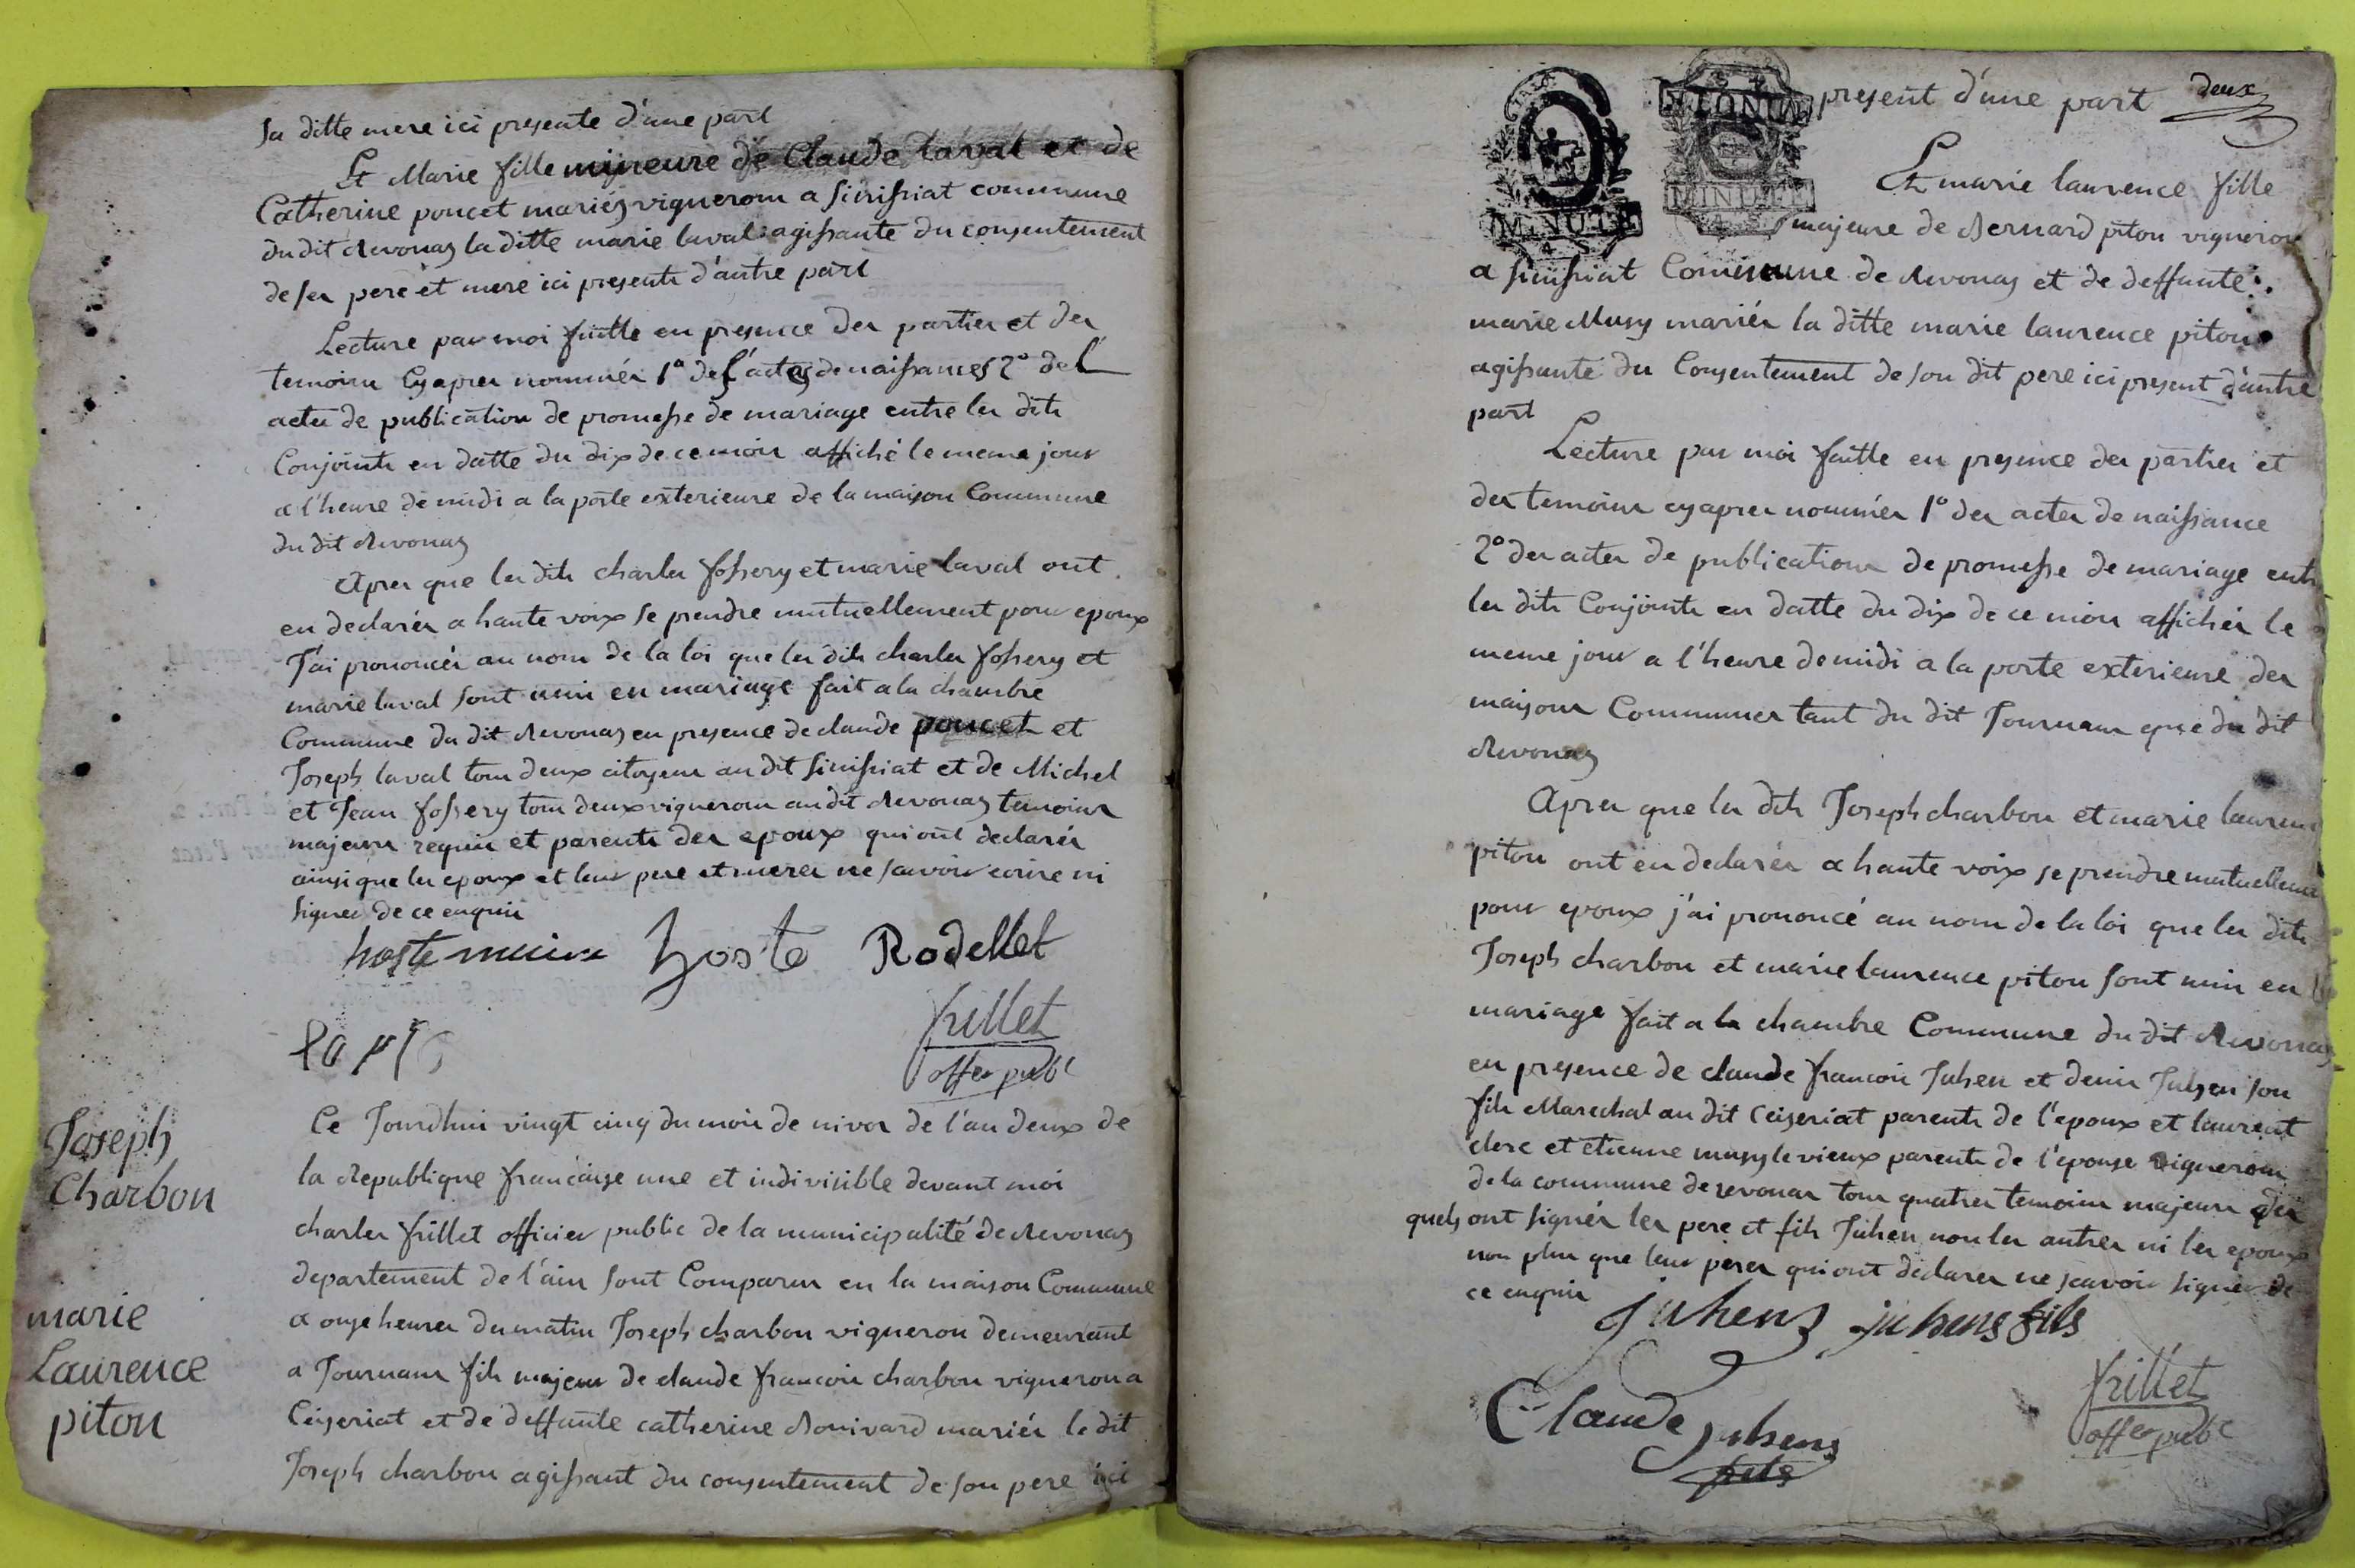 sa ditte mere ici presente d'une part
Et Marie fille mineure de Claude laval et de
Catherine poncet mariés vignerons a sinissiat commune
du dit Revonas la ditte marie laval agissante du consentement
de ses pere et mere ici presents d'autre part
Lecture par moi faitte en presence des parties et des
temoins cy apres nommés 1° des actes de naissances 2° de l'
actes de publication de promesse de mariage entre les dits
Conjoints en datte du dix de ce mois affiché le meme jour
a l'heure de midi a la porte exterieure de la maison Commune
du dit Revonas
Apres que les dits charles fossery et marie laval ont
eu declarés a haute voix se prendre mutuellement pour epoux
J'ai prononcés au nom de la loi que les dits charles fossery et
marie laval sont unis en mariage fait a la chambre
Commune du dit Revonas en presence de claude poncet et
Joseph laval tous deux citoyens au dit sinissiat et de Michel
et Jean fossery tous deux vignerons au dit Revonas temoins
majeurs requis et parents des epoux qui ont declarés
ainsi que les epoux et leur pere et meres ne savoir ecrire ni
signer de ce enquis
hoste maire hoste Rodellet
frillet
offer publ
Joseph
Charbon
marie
Laurence
piton
Ce Jourdhui vingt cinq du mois de nivos de l'an deux de
la Republique francaise une et indivisible devant moi
charles frillet officier public de la municipalité de Revonas
departement de l'ain sont Comparus en la maison Commune
a onze heures du matin Joseph charbon vigneron demeurant
a Journans fils majeur de claude francois charbon vigneron a
Ceiseriat et de deffunte catherine Bonivard mariés le dit
Joseph charbon agissant du consentement de son pere ici
present d'une part deux
MINUTE
MINUTE
Et marie laurence fille
majeure de Bernard piton vigneron
a sinissiat Commune de Revonas et de deffunte
marie Musy mariés la ditte marie laurence piton
agissante du Consentement de son dit pere ici present d'autre
part
Lecture par moi faitte en presence des parties et
des temoins cy apres nommés 1° des actes de naissance
2° des actes de publications de promesse de mariage entre
les dits Conjoints en datte du dix de ce mois affichés le
meme jour a l'heure de midi a la porte exterieure des
maisons Communes tant du dit Journans que du dit
Revonas
Apres que les dits Joseph charbon et marie laurence
piton ont eu declarés a haute voix se prendre mutuellement
pour epoux j'ai prononcé au nom de la loi que les dits
Joseph charbon et marie laurence piton sont unis en
mariage fait a la chambre Commune du dit Revonas
en presence de claude francois Juhen et denis Juhen son
fils Marechal au dit Ceiseriat parents de l'epoux et laurent
clerc et etienne musy le vieux parents de l'epouse vignerons
de la commune de revonas tous quatres temoins majeurs des
quels ont signés les pere et fils Juhen non les autres ni les epoux
non plus que leur peres qui ont declares ne scavoir signer de
ce enquis
Juhens juhens fils
Claude juhens
fils
frillet
offer publ